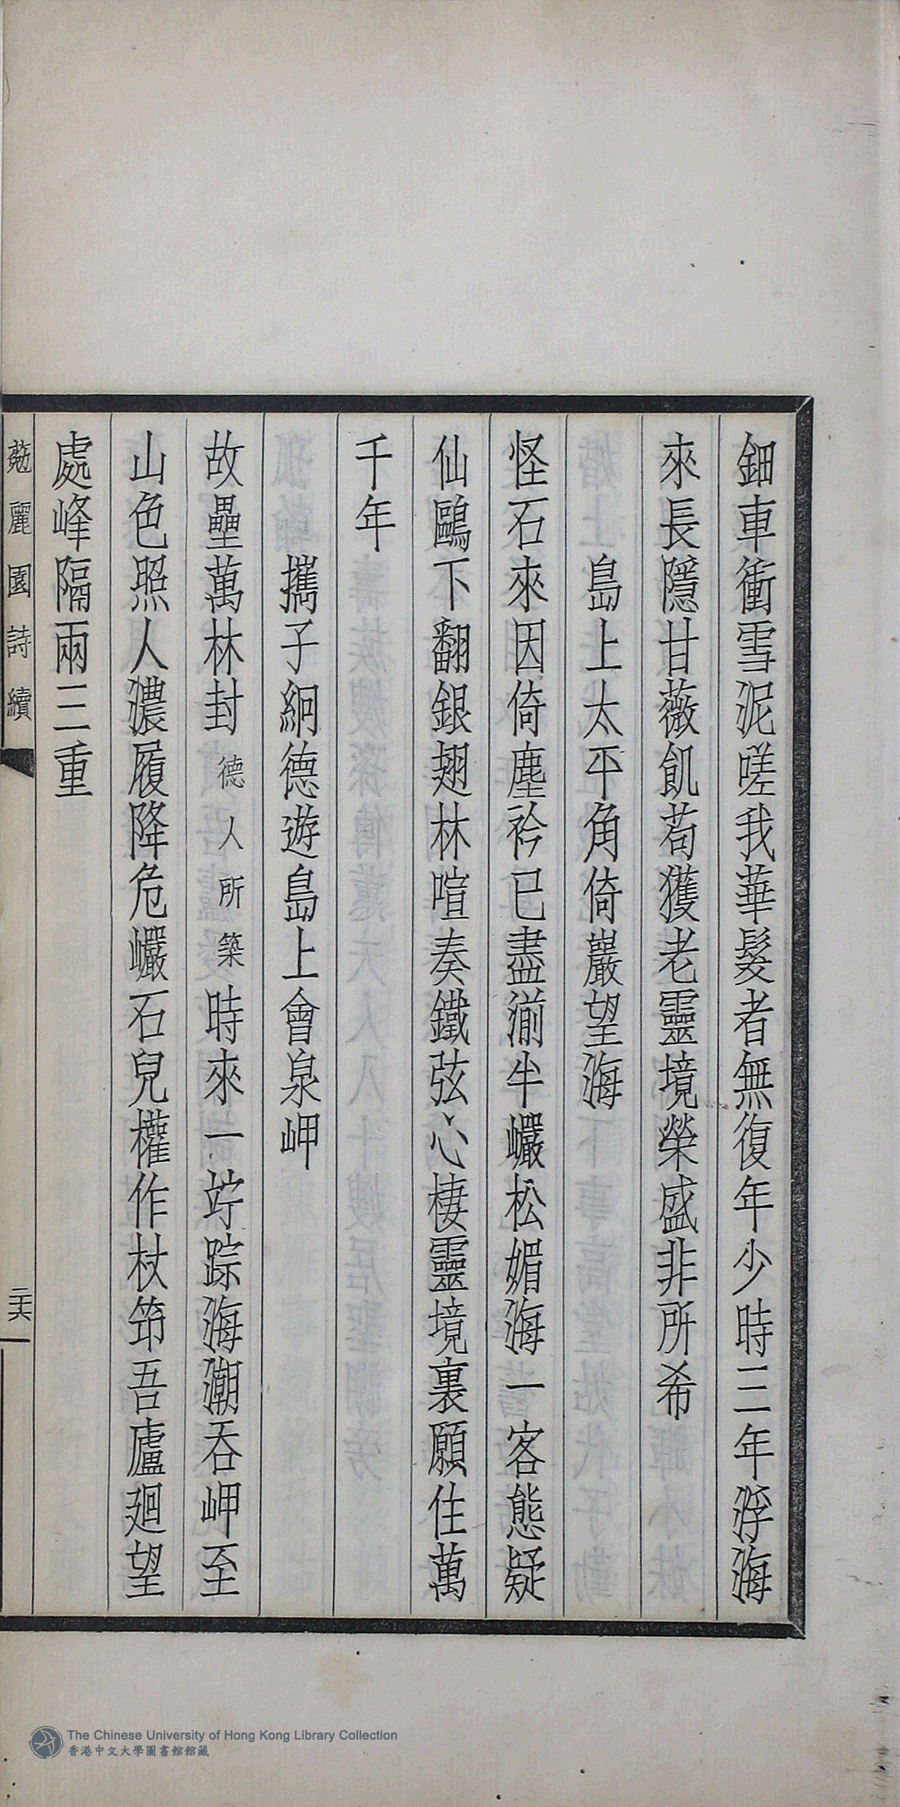 鈿車衝雪泥嗟我華髮者無復年少時三年浮海
來長隱甘薇飢苟獲老靈境榮盛非所希
島上太平角倚巖望海
怪石來因倚塵衿已盡湔半巘松媚海一客態疑
仙鷗下翻銀翅林喧奏鐵弦心棲靈境裏願住萬
千年
攜子絅德遊島上會泉岬
故壘萬林封德人所築時來一竚踪海潮吞岬至
山色照人濃履降危巘石兒權作杖筇吾廬迴望
處峰隔兩三重
麗園詩續
二六
The Chinese University of Hong Kong Library Collection
香港中文大學圖書館館藏